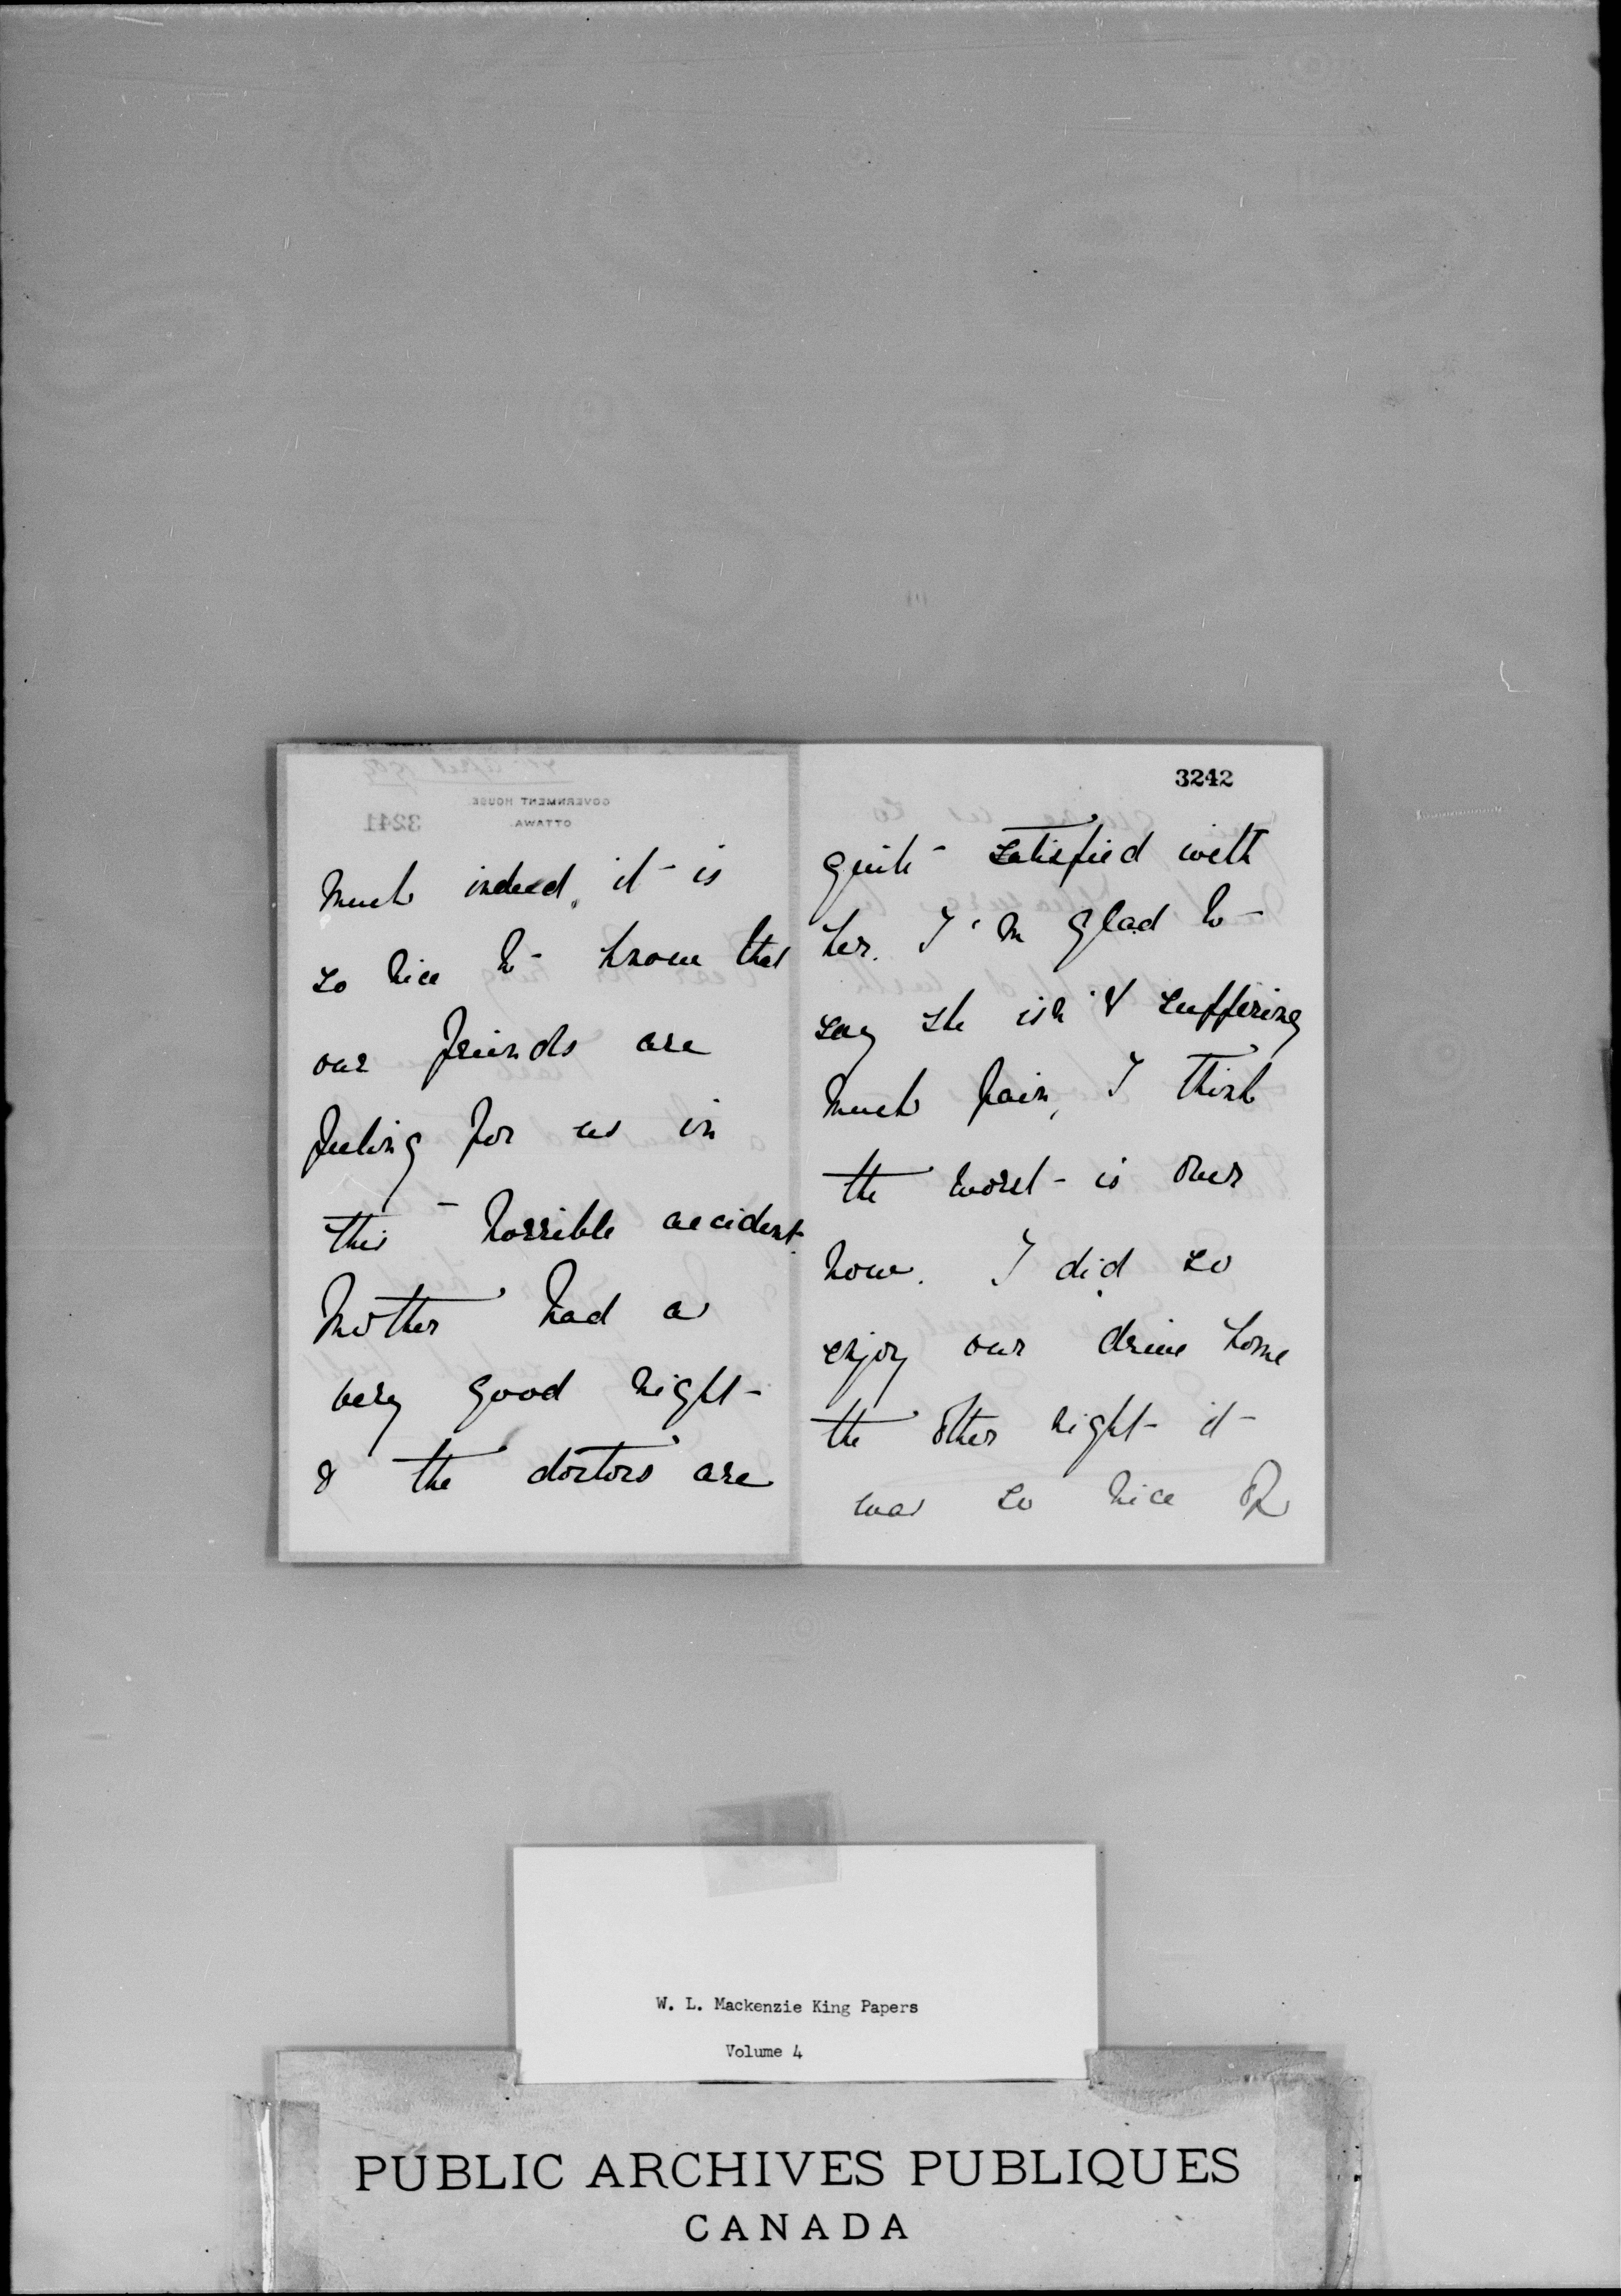 much indeed, it is
so nice to know that
our friends are
feeling for us in
this horrible accident.
Mother had a
very good night
& the doctors are
3242
quite satisfied with
her. I'm glad to
say she isn't suffering
much pain, I think
the worst is over
now. I did so
enjoy our drive home
the other night it
was so nice of
GOVERNMENT HOUSE
OTTAWA.
3241
W. L. Mackenzie King Papers
Volume 4
PUBLIC ARCHIVES PUBLIQUES
CANADA